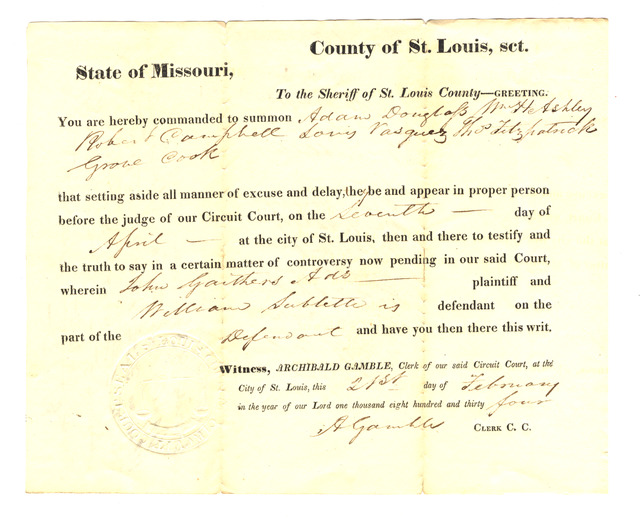 County of St. Louis, sct.
State of Missouri,
To the Sheriff of St. Louis County—GREETING.
You are hereby commanded to summon Adam Douglass Wm H Ashley
Robert Campbell Louis Vasquez Thos Fitzpatrick
Grove Cook
that setting aside all manner of excuse and delay, they be and appear in proper person
before the judge of our Circuit Court, on the Seventh — day of
April — at the city of St. Louis, then and there to testify and
the truth to say in a certain matter of controversy now pending in our said Court,
wherein John Gaithers Adr — plaintiff and
William Sublette is defendant on the
part of the Defendant and have you then there this writ.
Witness, ARCHIBALD GAMBLE, Clerk of our said Circuit Court, at the
City of St. Louis, this 21st day of February
in the year of our Lord one thousand eight hundred and thirty four
A Gamble CLERK C. C.